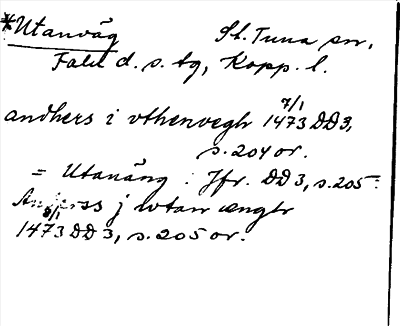 *Utanväg St. Tuna sn,
Falu d. s. tg, Kopp. l.
andhers i vthenvegh 7/1 1473 DD3,
s. 204 or.
= Utanäng. Jfr. DD 3, s. 205:
Anderss j wtan ængh
8/1 1473 DD 3, s. 205 or.